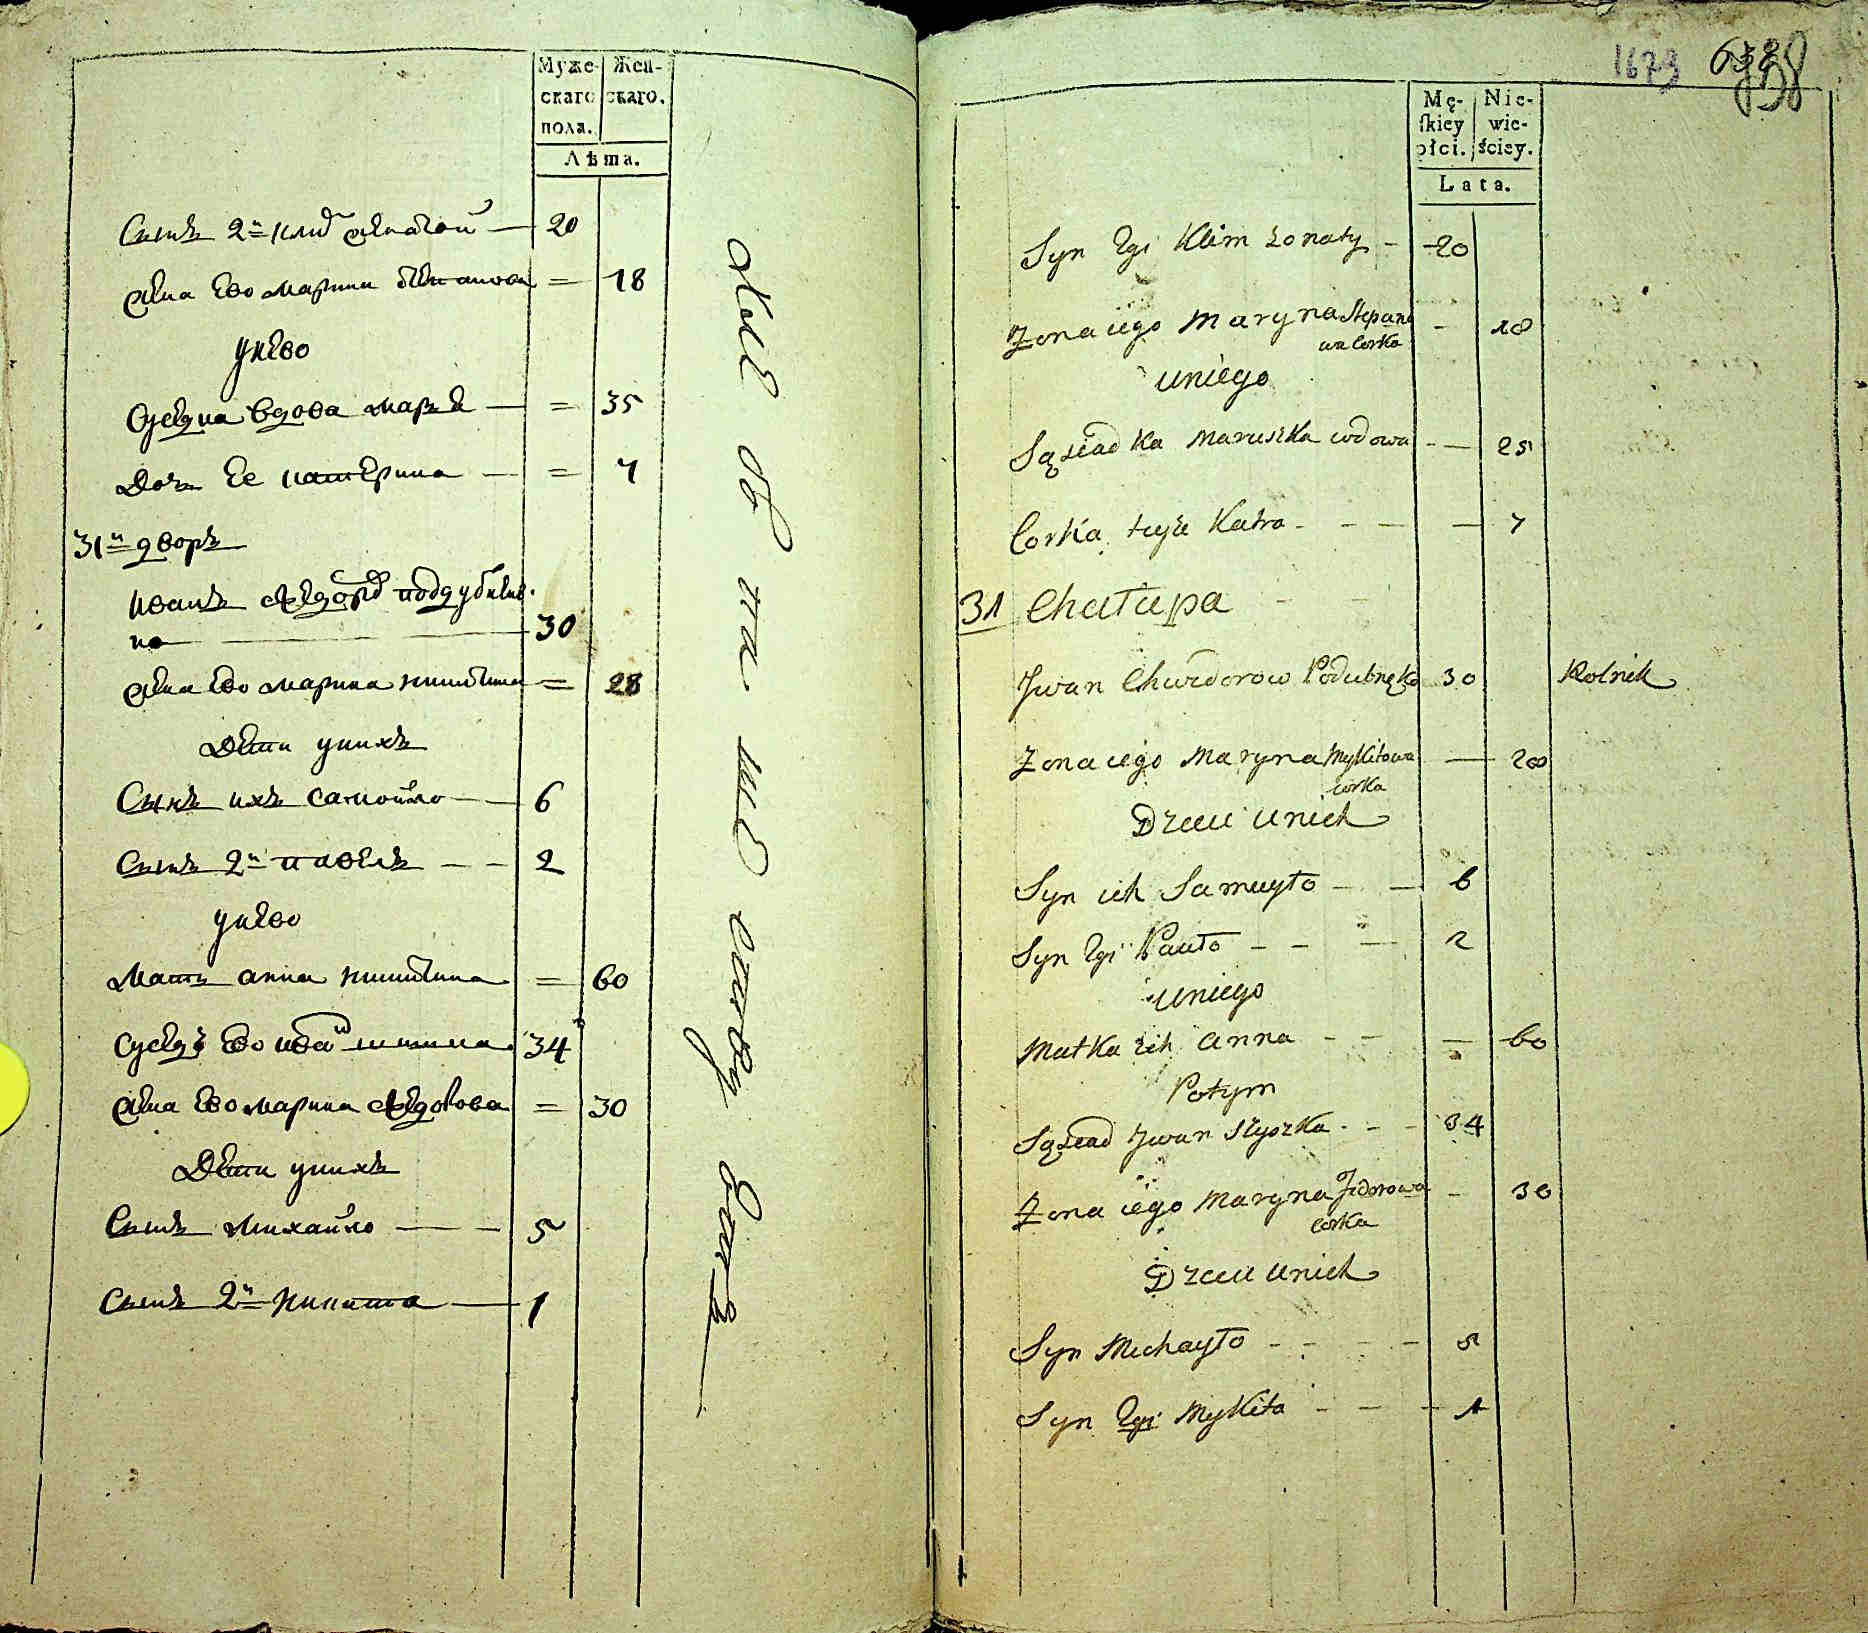 Муже-
скаго
пола.
Жен-
скаго.
Лѣта.
Сынъ 2й Клим женатой — 20
Жена Ево Марина Степанова = 18
У нево
Суседка вдова Маря — = 35
Дочь Ее Катерина — = 7
31й дворъ
Иванъ Федоров Поддубнен-
ко — 30
Жена Ево Марина Никитина = 28
Дети у нихъ
Сынъ ихъ Самойло — 6
Сынъ 2й Павелъ — 2
У нево
Мать Анна Никитина = 60
Суседъ Ево Иван 34
Жена Ево Марина Федорова = 30
Дети у нихъ
Сынъ Михайло — 5
Сынъ 2й Никита — 1
1679 658
Mę-
skiey
płci.
Nie-
wie-
ściey.
Lata.
Syn 2gi Klim żonaty - 20
Żona iego Maryna Stepano
wa Corka - 18
u niego
Sąsiadka Maruszka wdowa - 25
Corka teyże Katra - 7
31 Chałupa
Jwan Chwedorow Podubnęko 30 Rolnik
Żona iego Maryna Mykitowa — 28
corka
Dzieci u nich
Syn ich Samuyło — 6
Syn 2gi Pauło — 2
u niego
Matka ich Anna — 60
Potym
Sąsiad Jwan Szyszka - 34
Żona iego Maryna Fedorowa - 30
corka
Dzieci u nich
Syn Michayło - 5
Syn 2gi Mykita - 1